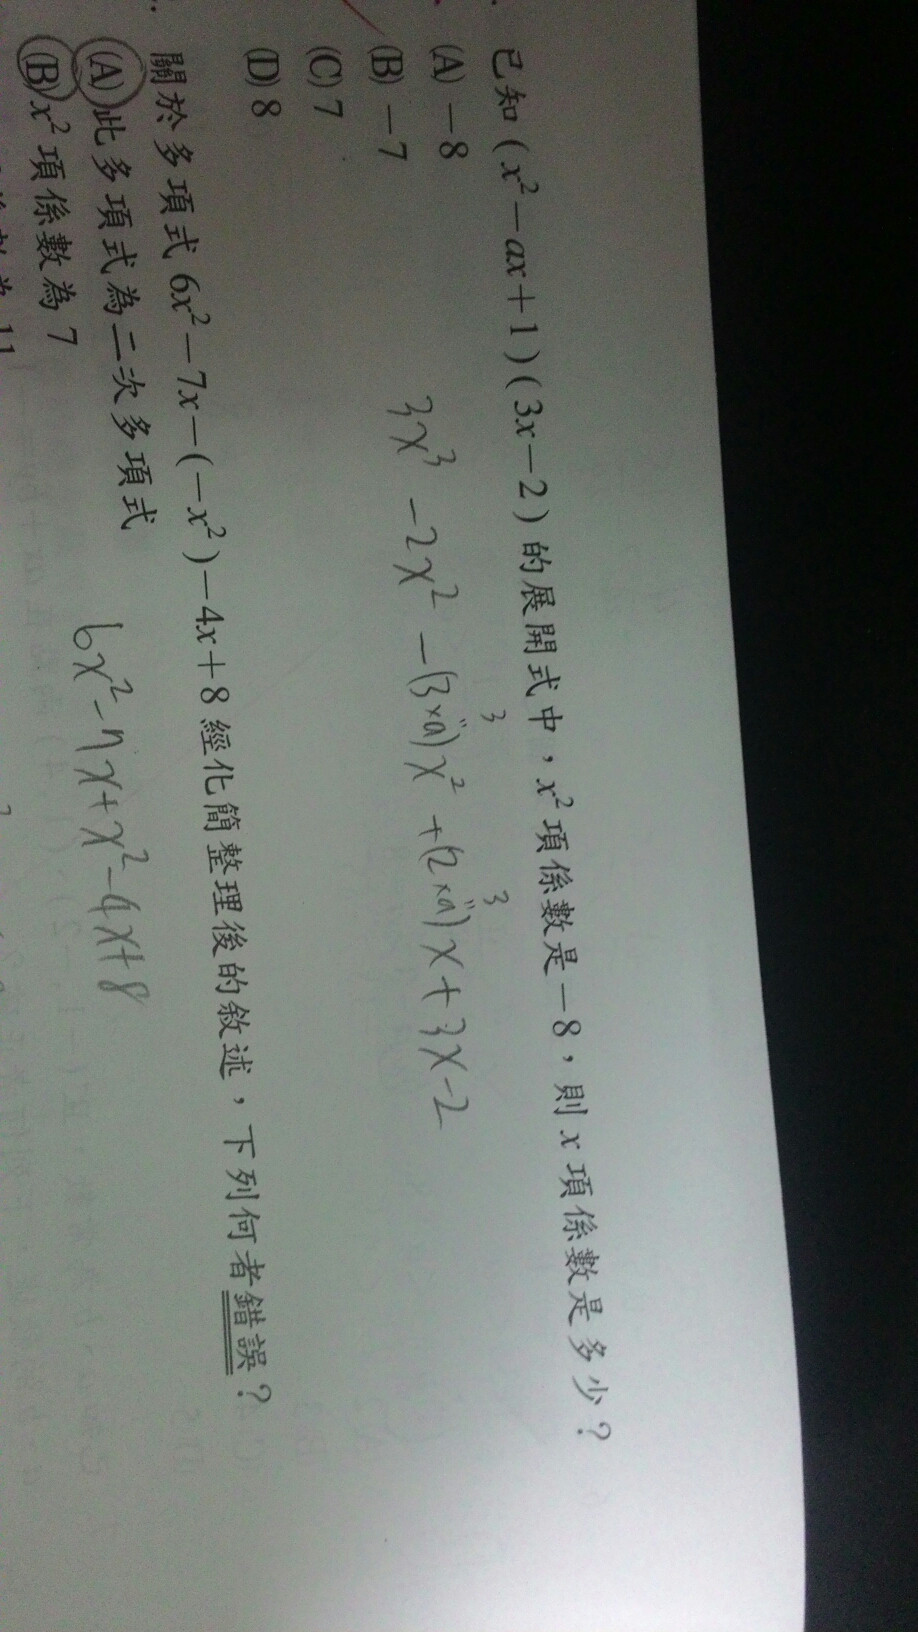 已知(x²－ax＋1)(3x－2)的展開式中，x²項係數是－8，則x項係數是多少？
(A)－8
(B)－7
(C) 7
(D) 8
3x³ －2x² －(3×a)x² ＋(2×a)x＋3x－2
3 3
關於多項式6x²－7x－(－x²)－4x＋8經化簡整理後的敘述，下列何者錯誤？
(A)此多項式為二次多項式
6x²－7x＋x²－4x＋8
(B) x²項係數為7